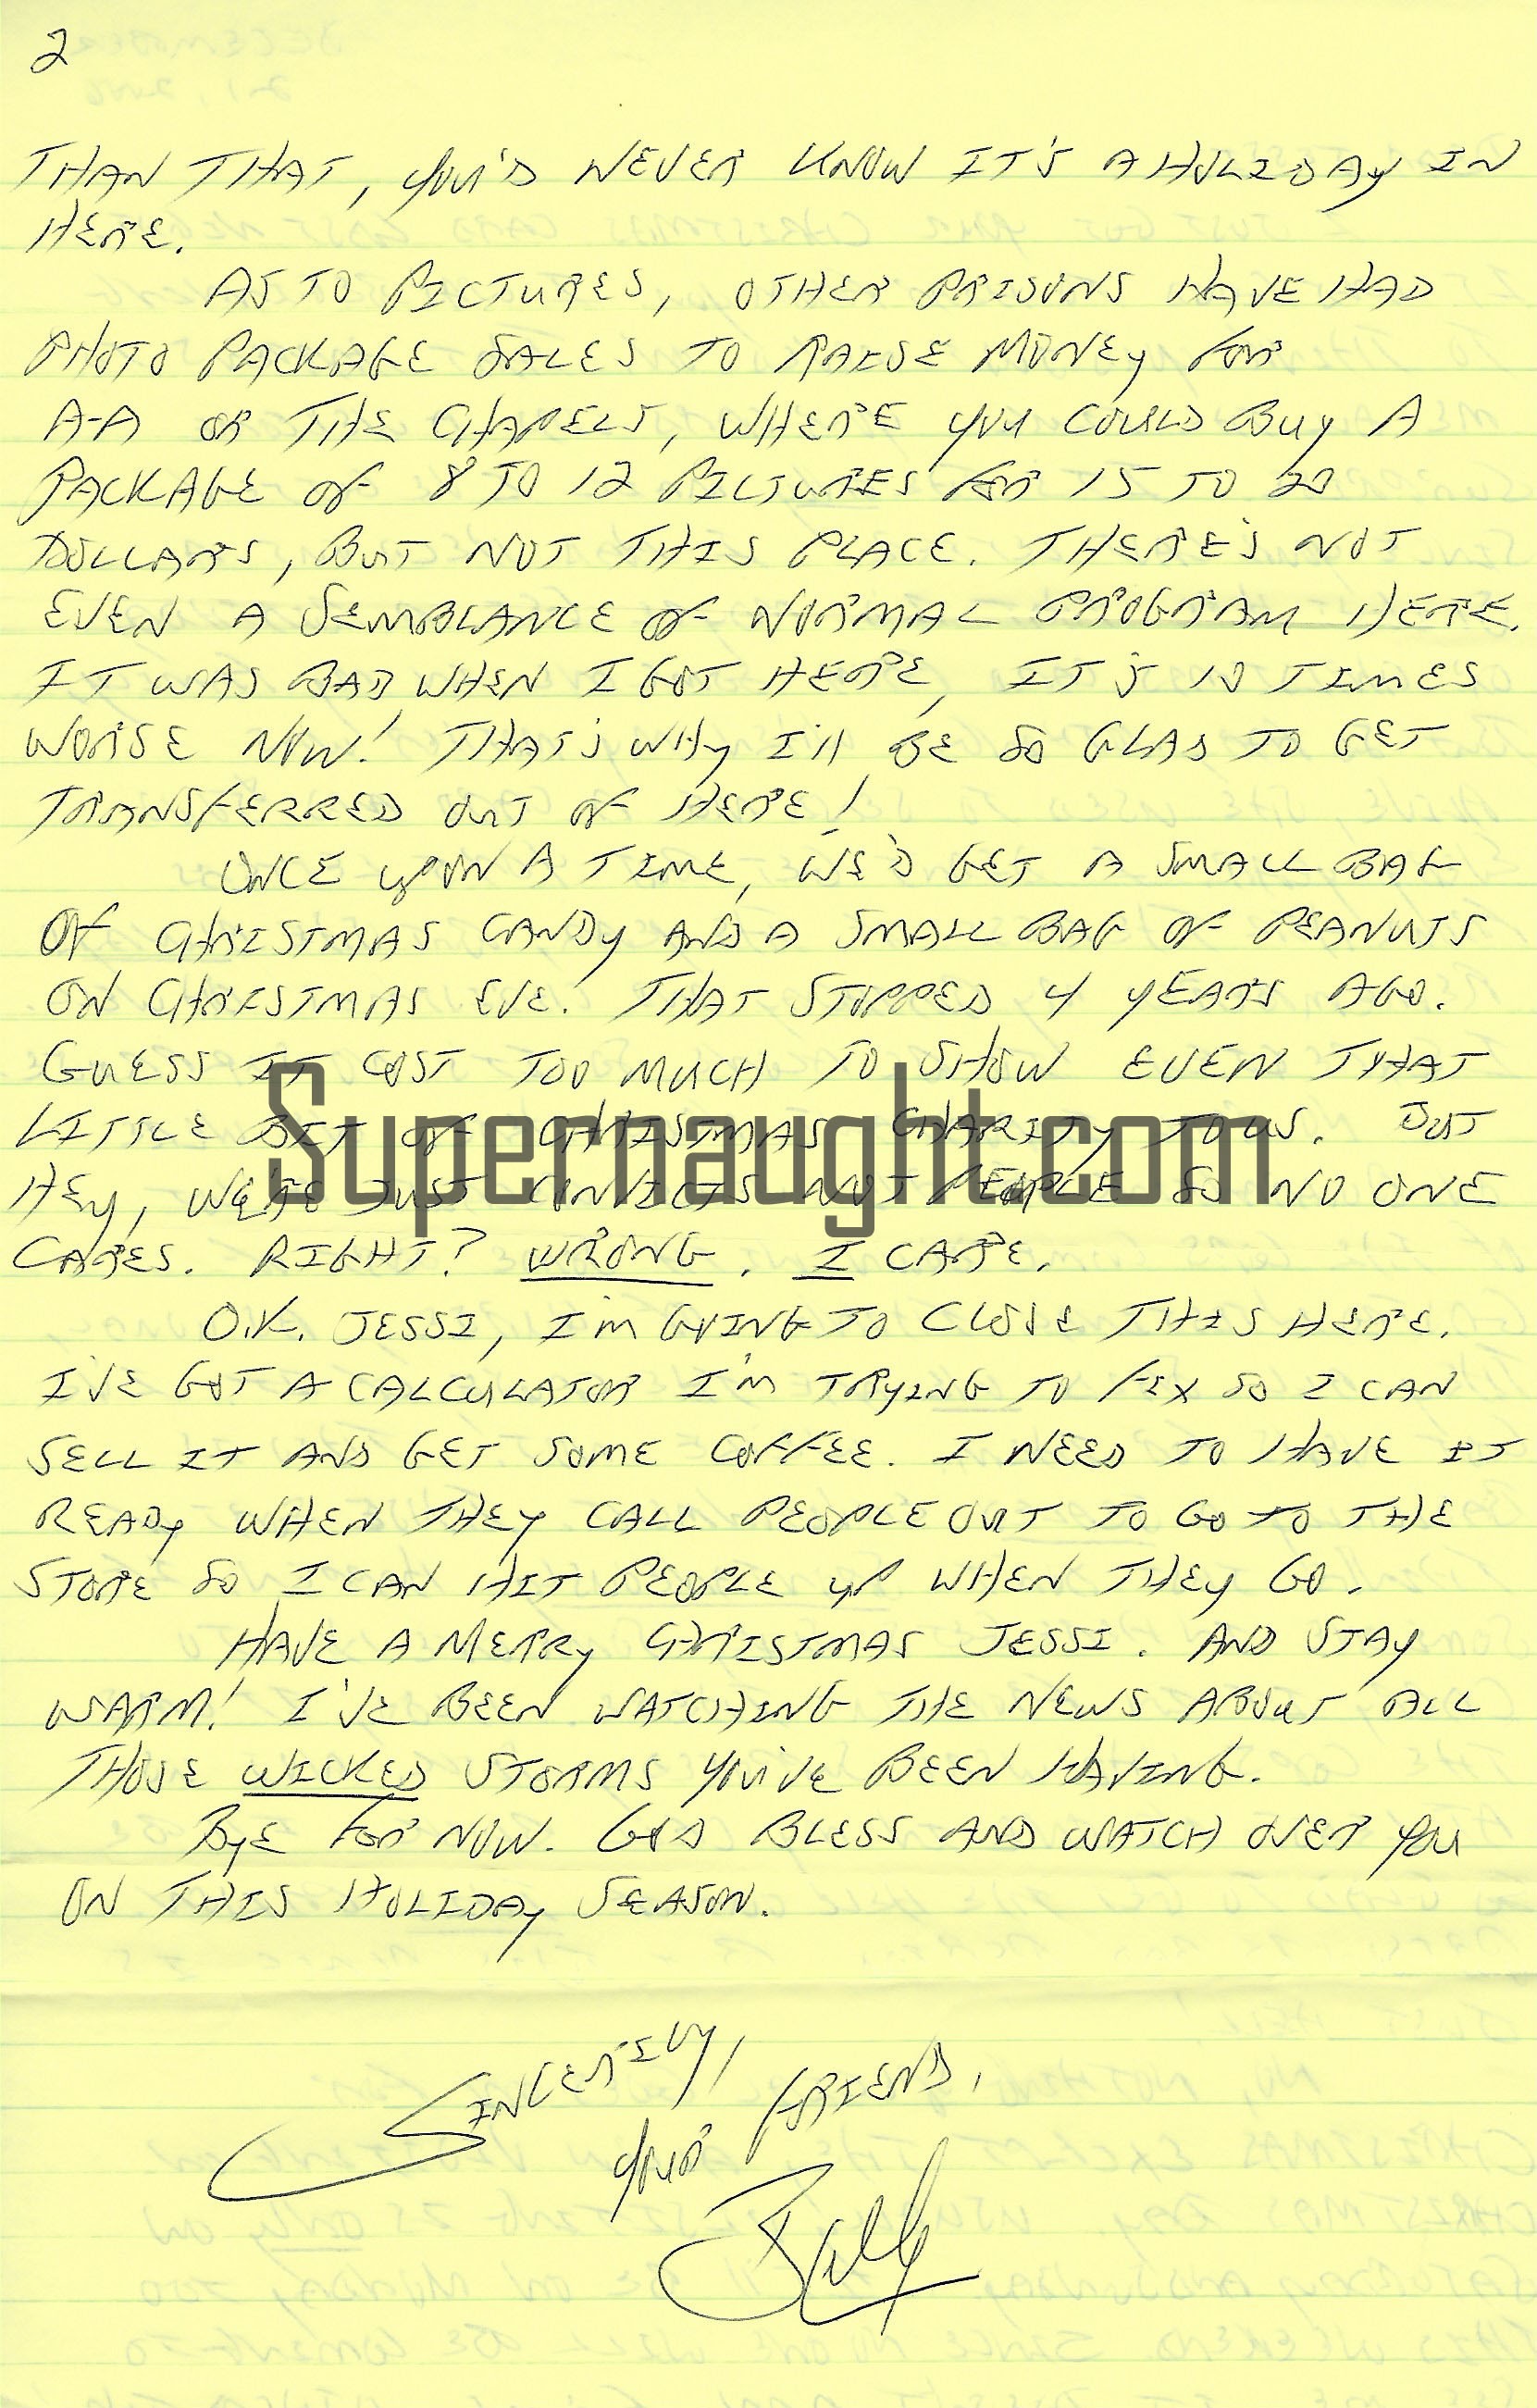 2
THAN THAT, YOU'D NEVER KNOW IT'S A HOLIDAY IN
HERE.
AS TO PICTURES, OTHER PRISONS HAVE HAD
PHOTO PACKAGE SALES TO RAISE MONEY FOR
A-A OR THE CHAPELS, WHERE YOU COULD BUY A
PACKAGE OF 8 TO 12 PICTURES FOR 15 TO 20
DOLLARS, BUT NOT THIS PLACE. THERE'S NOT
EVEN A SEMBLANCE OF NORMAL PROGRAM HERE.
IT WAS BAD WHEN I GOT HERE, IT'S 10 TIMES
WORSE NOW! THAT'S WHY I'll BE SO GLAD TO GET
TRANSFERRED OUT OF HERE!
ONCE UPON A TIME, WE'D GET A SMALL BAG
OF CHRISTMAS CANDY AND A SMALL BAG OF PEANUTS
ON CHRISTMAS EVE. THAT STOPPED 4 YEARS AGO.
GUESS IT COST TOO MUCH TO SHOW EVEN THAT
LITTLE BIT OF CHRISTMAS CHARITY TO US. BUT
Supernaught.com
HEY, WE'RE JUST CONVICTS NOT PEOPLE SO NO ONE
CARES. RIGHT? WRONG. I CARE.
O.K. JESSI, I'M GOING TO CLOSE THIS HERE.
I'VE GOT A CALCULATOR I'M TRYING TO FIX SO I CAN
SELL IT AND GET SOME COFFEE. I NEED TO HAVE IT
READY WHEN THEY CALL PEOPLE OUT TO GO TO THE
STORE SO I CAN HIT PEOPLE UP WHEN THEY GO.
HAVE A MERRY CHRISTMAS JESSI. AND STAY
WARM! I'VE BEEN WATCHING THE NEWS ABOUT ALL
THOSE WICKED STORMS YOU'VE BEEN HAVING.
BYE FOR NOW. GOD BLESS AND WATCH OVER YOU
ON THIS HOLIDAY SEASON.
SINCERELY,
YOUR FRIEND,
Bill